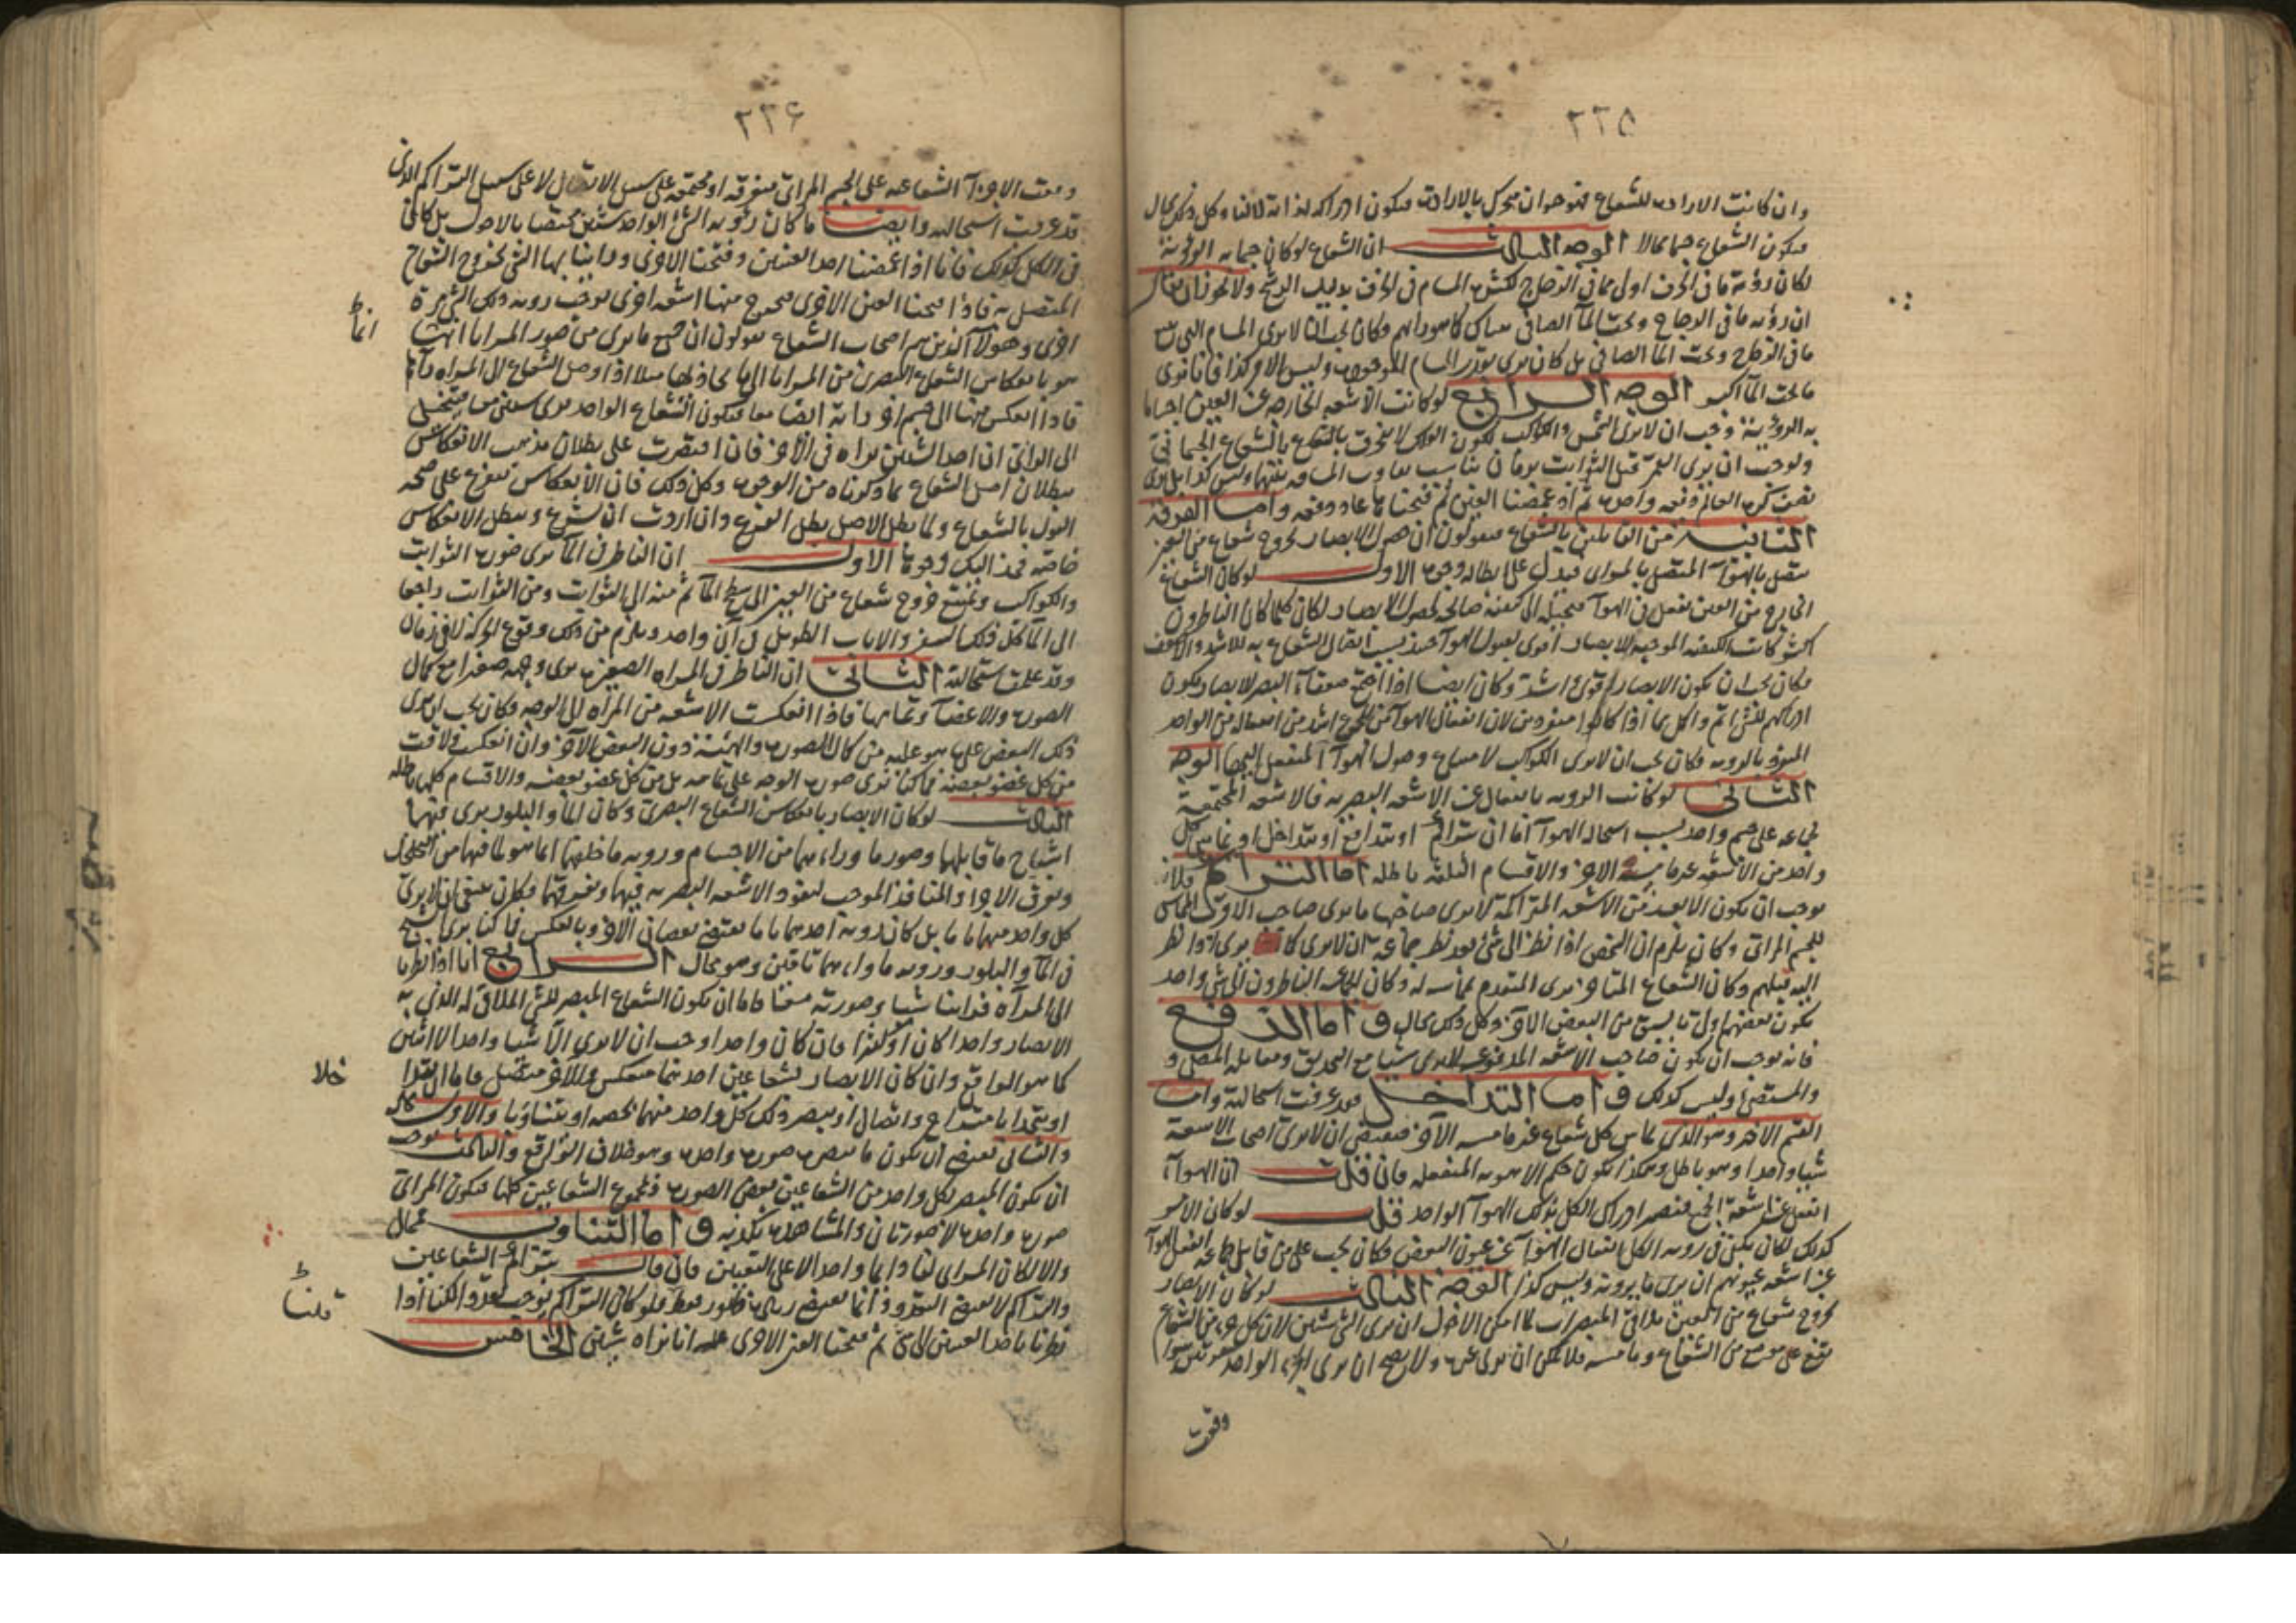 ٢٢٥
وان كانت الارادة للشعاع فهو حيوان متحرك بالارادة فيكون ادراكه لذاته لا لنا وكل ذلك محال
فيكون الشعاع جسما محالا الوجه الثالث ان الشعاع لوكان جسما به الرؤية
لكان رؤية ما في الخزف اولى مما في الزجاج لكثرة المسام في الخزف بدليل الرشح ولا يجوز ان يقال
ان رؤية ما في الزجاج وتحت الماء الصافي
ما في الزجاج وتحت الماء الصافي بل كان يرى بقدر المسام الموجودة وليس الامر كذا فانا نرى
ما تحت الماء اكبر الوجه الرابع لو كانت الاشعة الخارجة عن العين اجساما
به الرؤية وجب ان لا يرى الشمس والكواكب لكون الفلك لا ينخرق بالشعاع الجسماني
ولوجب ان يرى القمر قبل الثوابت بزمان يناسب تفاوت المسافة بينهما وليس كذا بل نرى
نصف كرة العالم دفعة واحدة ثم اذا غمضنا العين ثم فتحنا ما عاد دفعة واما الفرقة
الثانية من القايلين بالشعاع فيقولون ان حصول الابصار بخروج شعاع من العين
متصل بالهواء المتصل بالمرئي فيدل على ابطاله وجوه الاول لوكان الشعاع
الخارج من العين يفعل في الهواء فيحيله الى كيفية صالحة لحصول الابصار لكان كلما كان الناظرون
اكثر كانت الكيفية الموجبة للابصار اقوى لقبول الهواء حينئذ بسبب اتصال الشعاع به للاشد والاضعف
فكان يجب ان يكون الابصار اقوى واشد وكان ايضا اذا اجتمع ضعفاء البصر للابصار يكون
ادراكهم للشئ اتم واكمل مما اذا كانوا منفردين لان انفعال الهواء من الجمع اشد من انفعاله من الواحد
المنفرد بالرؤية وكان يجب ان لا يرى الكواكب لامتناع وصول الهواء المنفعل اليها الوجه
الثاني لو كانت الرؤية بانفعال عن الاشعة البصرية فالاشعة المجتمعة
لجماعة على جسم واحد بسبب استحالة الهواء اما ان تتراكم او تتدافع او تتداخل او يماس كل
واحد من الاشعة غير ما مسه الاخر والاقسام الثلثة باطلة اما التراكم فلانه
يوجب ان يكون الابعد من الاشعة المتراكمة لا يرى صاحبها ما يرى صاحب الاقرب المماس
للجسم المرئي وكان يلزم ان الشخص اذا نظر الى شئ بعد نظر جماعة ان لا يرى كما يرى اذا نظر
اليه قبلهم وكان الشعاع المتاخر يرى المتقدم لمماسه له وكان لجماعة الناظرون الى شئ واحد
يكون بعضهم اولى بالسبق من البعض الاخر وكل ذلك محال واما التدافع
فانه يوجب ان يكون صاحب الاشعة المدفوعة لا يرى شيا مع التحديق ومقابلة المضئ و
والمستضئ وليس كذلك واما التداخل فقد عرفت استحالته واما
القسم الاخير وهو الذي يماس كل شعاع غير ما مسه الآخر فيقتضي ان لا يرى اصحاب الاشعة
شيا واحدا وهو باطل وهكذا يكون حكم الاهوية المنفعلة فان قلت ان الهواء
انفعل عن اشعة الجمع فيصير ادراك الكل بذلك الهواء الواحد قلت لوكان الامر
كذلك لكان يكفي في رؤية الكل انفعال الهواء عن عيون البعض وكان يجب على من قابل جماعة انفعل الهواء
عن اشعة عيونهم ان يرى ما يرونه وليس كذا الوجه الثالث لو كان الابصار
بخروج شعاع من العين يلاقي المبصرات لما امكن الاحول ان يرى الشئ شيئين لان كل جزء من الشعاع
يقع على موضع من الشعاع ويماسه فلا يمكن ان يرى غيره ولا يصح ان يرى الجزء الواحد
وقوت
٢٢٦
وقوت الاجزاء الشعاعية على الجسم المرئي متفرقة او مجتمعة على سبيل الاتصال لا على سبيل التراكم الذي
قد عرفت استحالته وايضا ما كان رؤية الشئ الواحد شيئين مختصا بالاحول بل كان
في الكل كذلك فانا اذا غمضنا احد العينين وفتحنا الاخرى وراينا بها الشئ بخروج الشعاع
المتصل به فاذا فتحنا العين الاخرى فيخرج منها اشعة اخرى توجب رؤية ذلك الشئ مرة
اخرى وهؤلاء الذين هم اصحاب الشعاع يقولون ان جميع ما يرى من صور المرايا انما
هو بانعكاس الشعاع البصري من المرايا الى ما يحاذيها مثلا اذا وصل الشعاع الى المراة رآها
فاذا انعكس منها الى جسم اخر رآه ايضا معا فيكون الشعاع الواحد يرى شيئين معا فيتخيل
الى الرائي ان احد الشيئين يراه في الآخر فان اقتصرت على بطلان مذهب الانعكاس
ببطلان اصل الشعاع بما ذكرناه من الوجوه وكل ذلك فان الانعكاس يتفرع على صحة
القول بالشعاع ولما بطل الاصل بطل الفرع وان اردت ان نشرع ونبطل الانعكاس
خاصة فخذ اليك وجوها الاول ان الناظر في الماء يرى صورة الثوابت
والكواكب ويمتنع خروج شعاع من العين الى سطح الماء ثم منه الى الثوابت ومن الثوابت راجعا
الى الماء كل ذلك السفر والاياب الطويل في آن واحد ويلزم من ذلك وقوع الحركة لا في زمان
وقد علمت استحالته الثاني ان الناظر في المراة الصغيرة يرى وجهه صغيرا مع كمال
الصورة والاعضاء وتمامها فاذا انعكست الاشعة من المراة الى الوجه فكان يجب ان يرى
ذلك البعض على ما هو عليه من كمال الصورة والهيئة دون البعض الآخر وان انعكست ولاقت
من كل عضو بعضه فما كنا نرى صورة الوجه على تمامه بل من كل عضو بعضه والاقسام كلها باطلة
الثالث لوكان الابصار بانعكاس الشعاع البصري وكان الماء والبلور يرى فيهما
اشباح ما قابلها وصور ما وراءهما من الاجسام ورؤية ما خلفهما انما هو لما فيهما من الخلل
وتفرق الاجزاء والمنافذ الموجب لنفوذ الاشعة البصرية فيهما وتفرقهما فكان ينبغي ان لا يرى
كل واحد منهما تاما بل كان رؤية احدهما تاما يقتضي نقصان الآخر وبالعكس فما كنا نرى الشبح
في الماء والبلور ورؤية ما وراءهما تامين وهو محال الرابع انا اذا نظرنا
الى المرآة فراينا شيا وصورته معا فاما ان يكون الشعاع المبصر للشئ الملاقي له الذي به
الابصار واحدا كان او كثيرا فان كان واحدا وجب ان لا يرى الا شيا واحدا لا اثنين
كما هو الواقع وان كان الابصار لشعاعين احدهما منعكس والآخر متصل فاما ان يتحدا
او يتحدا بامتداد واتصال او يبصر ذلك كل واحد منهما بخصه او يتناوبا والاول محال
والثاني يقتضي ان يكون ما يبصره صورة واحدة وهو خلاف الواقع والثالث يوجب
ان يكون المبصر لكل واحد من الشعاعين بعض الصورة فمجموع الشعاعين كلها فيكون المرئي
صورة واحدة لا صورتان والمشاهدة بكذبه واما التناوب فمحال
والا لكان المرئي لنا دايما واحدا لا على التعيين فان قال يتراكم الشعاعين
والتراكم لا يقتضي التعدد وانما يقتضي زيادة ظهور فقط فلو كان التراكم يوجب تعدد لكنا اذا
نظرنا باحد العينين الى شئ ثم فتحنا العين الاخرى عليه انا نراه شيئين الخامس
ايضا
خلا
قلنا